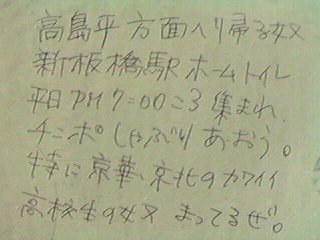 高島平方面へり帰る奴
新板橋駅ホームトイレ
平日PM7=00ころ集まれ
チンポしゃぶりあおう。
特に京華、京北のカワイイ
高校生の奴まってるぜ。